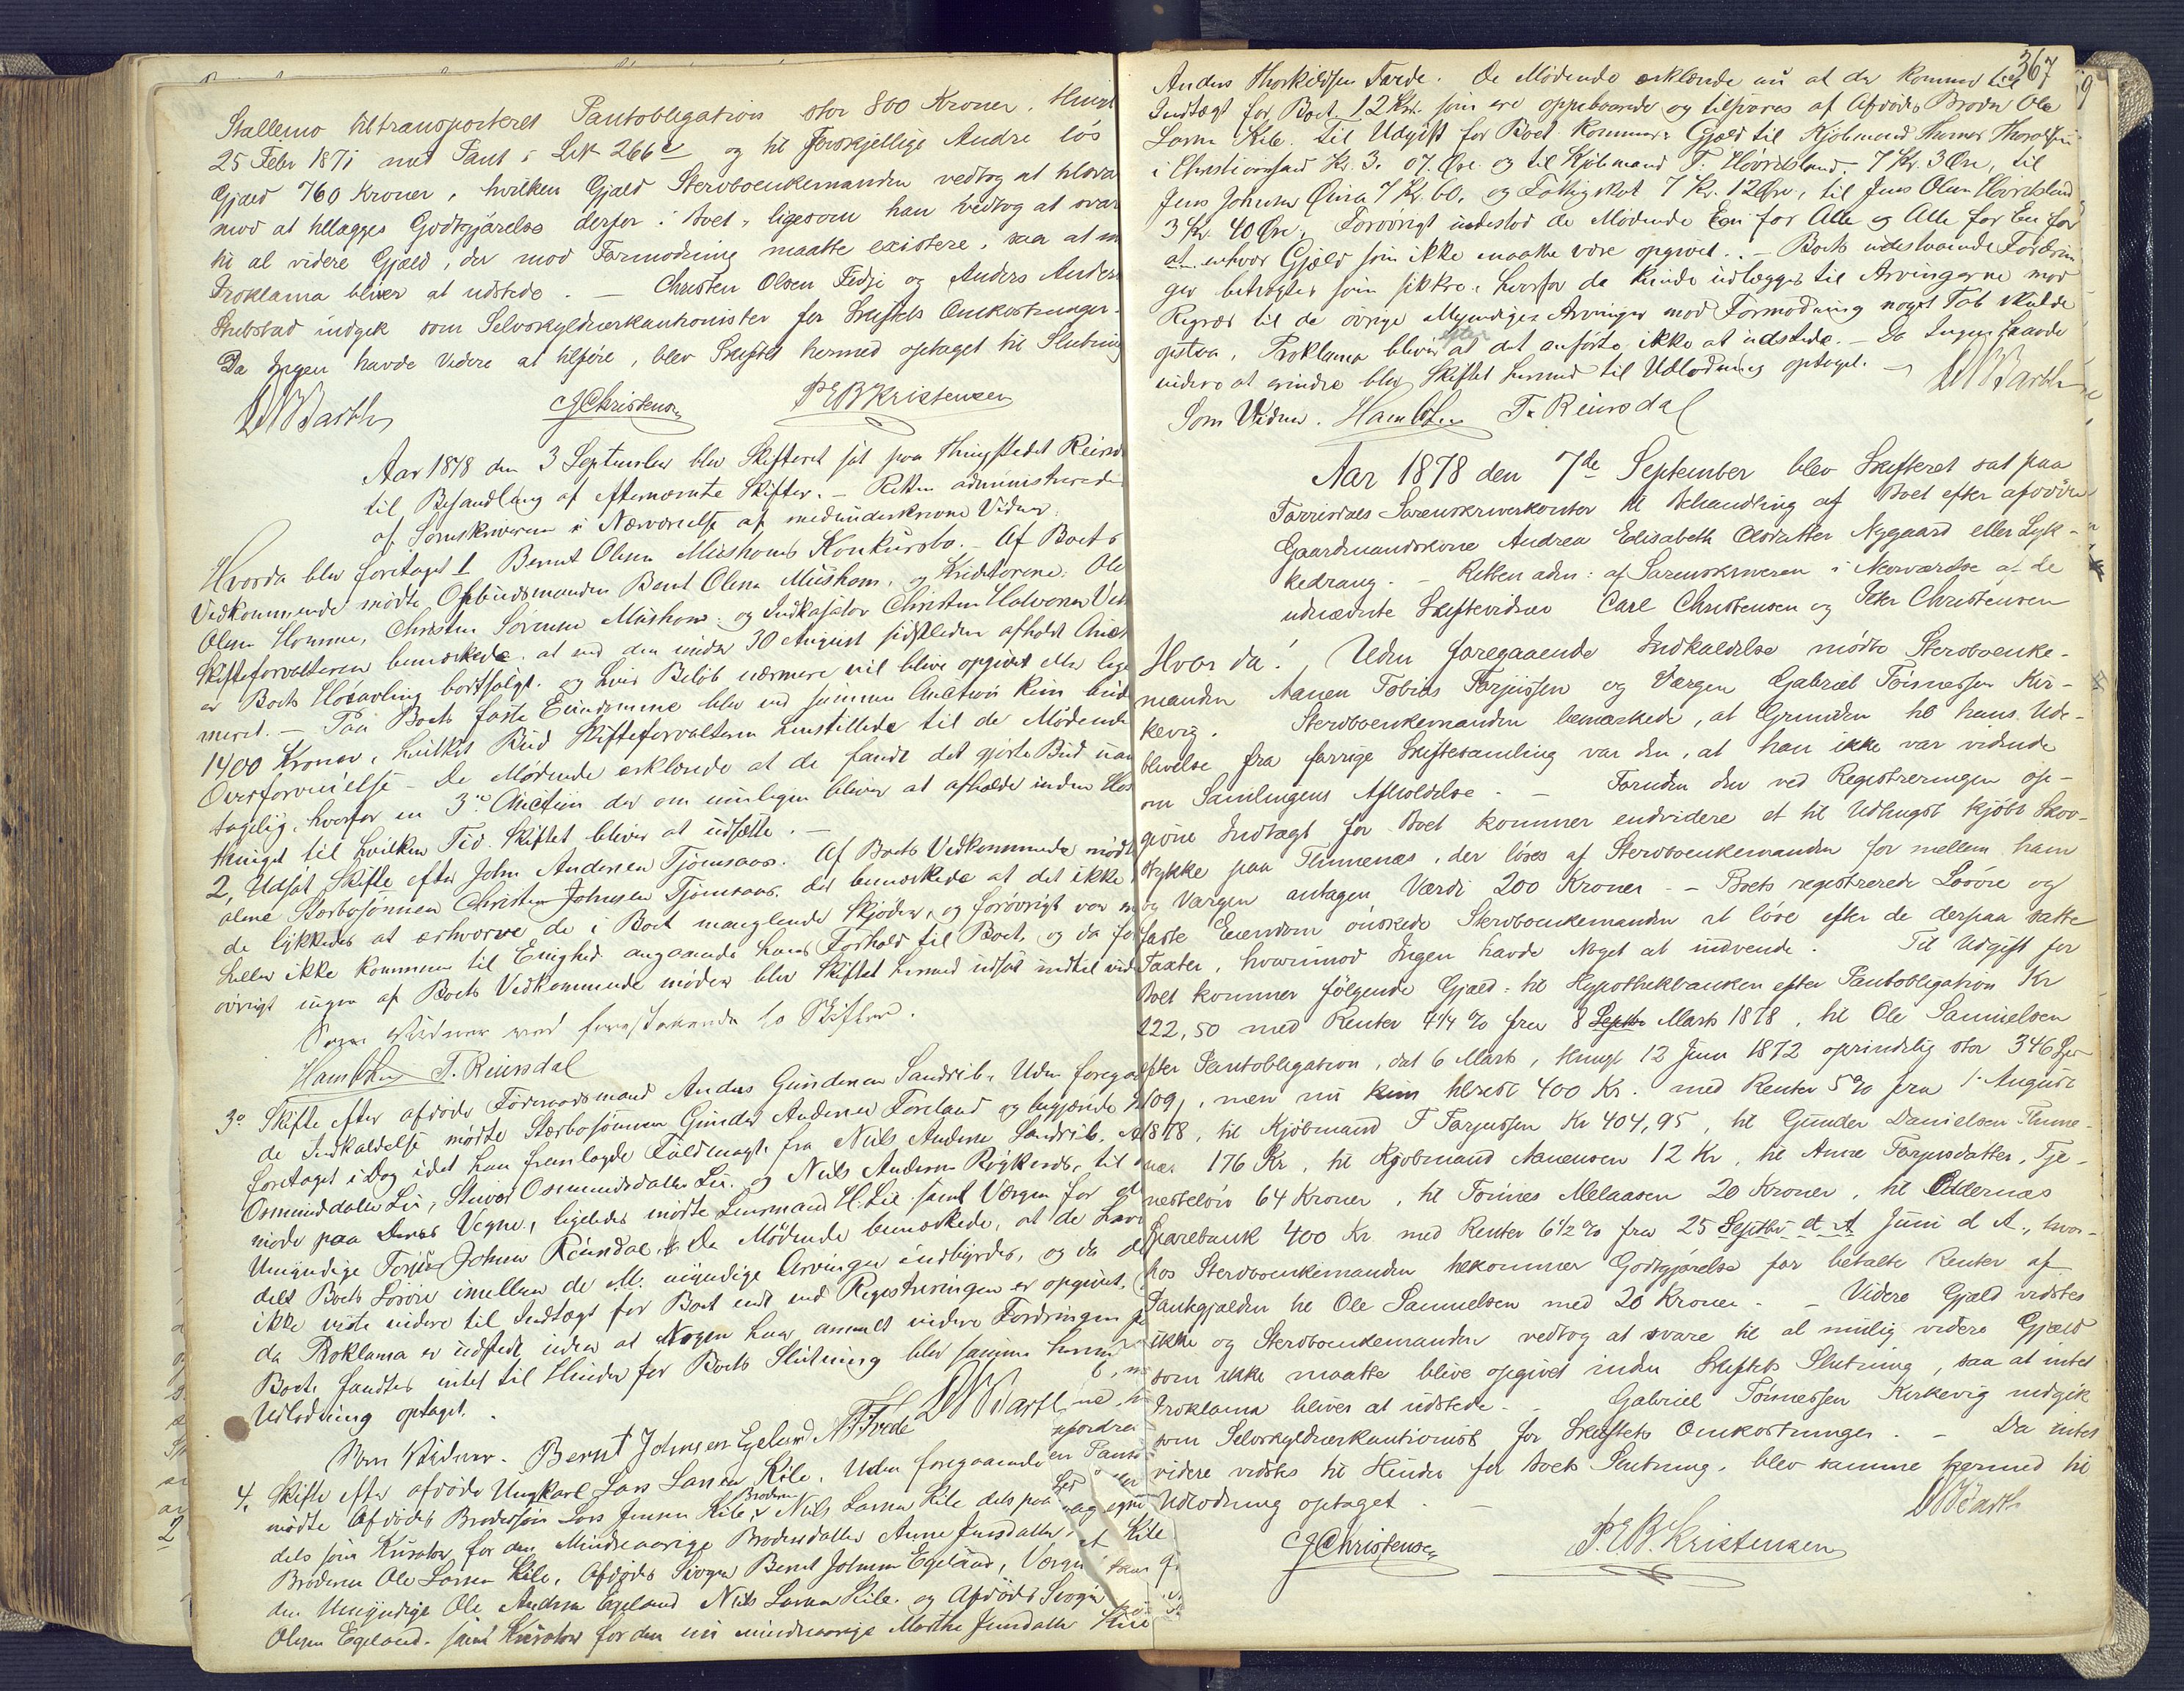 Stallemo til transporteret Pantobligation stor 800 Kroner, thingl
25 Febr 1871 med Pant i Lit 266 c og til forskjellige Andre løs
Gjæld 760 Kroner, hvilken Gjæld Stervboenkemanden vedtog at klare
mod at tillægges Godtgjørelse derfor i Boet, ligesom han vedtog at svare
til al videre Gjæld, der mod Formodning maatte existere, saa at
Proklama bliver at udstede. — Christen Olsen Fedje og Anders Anders
Stubstad indgik som Selvskyldnerkautionister for Skiftets Omkostninger.
Da Ingen havde Videre at tilføre, blev Skiftet hermed optaget til Slutning
Barth CJChristensen P.E.B.Kristensen
Aar 1878 den 3 September blev Skifteret sat paa Thingstedet Reins
til Behandling af efternævnte Skifter. — Retten administreredes
af Sorenskriveren i Nærværelse af medunderskrevne Vidner.
Hvorda blev foretaget 1 Bernt Olsen Mushoms Konkursbo. — Af Boets
Vedkommende mødte Opbudsmanden Bernt Olsen Mushom, og Kreditorene: Ole
Olsen Homme, Christen Sørensen Mushom, og Indkasator Christen Halvorsen
Skifteforvalteren bemærkede, at ved den under 30 August sidstleden afholdt Auct
er Boets Høiavling bortsolgt, og hvis Beløb nærmere vil blive opgivet eller
meret. — Paa Boets faste Eiendomme blev ved samme Auction kun bud
1400 Kroner, hvilket Bud Skifteforvalteren henstillede til de Mødende
Overforveielse — De Mødende erklærede at de fandt det gjorte Bud uan
tagelig, hvorfor en 3die Auction der om muligen bliver at afholde inden Høst
thinget til hvilken Tid Skiftet bliver at udsætte. —
2, Udsat Skifte efter John Andersen Tjomsaas. Af Boets Vedkommende mødte
alene Stervbosønnen Christen Johnsen Tjomsaas, der bemærkede at det ikke
de lykkedes at erhverve de i Boet manglende Skjøder, og forøvrigt var
heller ikke kommen til Enighed angaaende hans Forhold til Boet, og da for
øvrigt ingen af Boets Vedkommende møder blev Skiftet hermed udsat indtil vid
Som Vidner ved forestaaende to Skifter.
T. Reinsdal
3o Skifte efter afdøde Føderaadsmand Anders Gundersen Sandrib. Uden foregaa
de Indkaldelse mødte Stervbosønnen Gunder Andersen Foreland og begjærede
foretaget i Dag idet han fremlagde Fuldmagt fra Niels Andersen Sandrib,
Osmunddatter Lie, Osmundsdatter Lie og Niels Andersen Røykenes, til
møde paa Deres Vegne, ligeledes mødte Lensmand H. Lie samt Værgen for
Umyndige Torjus Johnsen Reinsdal. Da Mødende bemærkede, at de hav
delt Boets Løsøre imellem de M. myndige Arvinger indbyrdes, og da de
ikke viste videre til Indtægt for Boet end ved Registreringen er opgivet,
da Proklama er udstedt uden at Nogen har anmeldt videre Fordringer
Boet, fandtes intet til Hinder for Boets Slutning blev samme hermed
Udlodning optaget.
Barth
Som Vidner. Bernt Johnsen Egeland
4. Skifte efter afdøde Ungkarl Lars Larsen Kile. Uden foregaaende
mødte Afdødes Brodersøn Lars Jensen Kile, Broderen Niels Larsen Kile dels paa egne
dels som Kurator for den Mindreaarige Brodersdatter Anne Jensdatter Kile
Broderen Ole Larsen Kile, Afdødes Svoger Bernt Johnsen Egeland, Værge
den Umyndige Ole Andersen Egeland Niels Larsen Kile og Afdødes Svoger
Olsen Egeland, samt Kurator for den mindreaarige Marthe Jensdatter Kile
367
Anders Thorkildsen Tveide. De Mødende erklærede nu at der kommer til
Indtægt for Boet 12 Kr. som ere oppebaarede og tilsvares af Afdødes Broder Ole
Larsen Kile. Til Udgift for Boet kommer: Gjæld til Kjøbmand
i Christianssand Kr. 3. 07. Øre og til Kjøbmand T. Hovridsland 7 Kr. 3 Øre, til
Jens Johnsen 7 Kr. 60. og Fattigskat 7 Kr. 12 Øre, til Jens Olsen
3 Kr. 40 Øre. Forøvrigt indestod de Mødende Een for Alle og Alle for Een for
at enhver Gjæld som ikke maatte være opgivet. — Boets udestaaende Fordrin
ger betragtes som sikkre, hvorfor de kunde udlægges til Arvingerne mod
Regres til de øvrige Myndige Arvinger mod Formodning noget Tab skulde
opstaa. Proklama bliver efter at det anførte ikke at udstede. — Da Ingen havde
videre at erindre blev Skiftet hermed til Udlodning optaget. — Barth
Som Vidner. T. Reinsdal
Aar 1878 den 7de September blev Skifteret sat paa
Torrisdals Sorenskriverkontor til Behandling af Boet efter afdøde
Gaardmandskone Andrea Elisabeth Olsdatter Nygaard eller Lyk-
kedrang. — Retten adm: af Sorenskriveren i Nærværelse af de
udnævnte Skiftevidner Carl Christensen og Peter Christensen
Hvor da! Uden foregaaende Indkaldelse mødte Stervboenke-
manden Aanen Tobias Torjussen og Værgen Gabriel Tønnessen Kir-
kevig. Stervboenkemanden bemærkede, at Grunden til hans Ude-
blivelse fra forrige Skiftesamling var den, at han ikke var vidende
om Samlingens Afholdelse. — Foruden den ved Registreringen op-
givne Indtægt for Boet kommer endvidere et til Udhugst kjøbt Skov-
stykke paa Thimenæs, der løses af Stervboenkemanden for mellem ham
og Værgen antagen Værdi 200 Kroner. — Boets registrerede Løsøre og
faste Eiendom ønskede Stervboenkemanden at løse efter de derpaa satte
Taxter, hvorimod Ingen havde Noget at indvende. Til Udgift for
Boet kommer følgende Gjæld: til Hypothekbanken efter Pantobligation Kr
222,50 med Renter 4 1/4 % fra 8 Septbr Marts 1878, til Ole Samuelsen
efter Pantobligation, dat 6 Marts, thingl 12 Juni 1872 oprindelig stor 346 Spd
109 β, men nu kun tilrest 400 Kr. med Renter 5 % fra 1 August
1878, til Kjøbmand T Torjussen Kr 404,95, til Gunder Danielsen Thime-
næs 176 Kr, til Kjøbmand Aanensen 12 Kr, til Anne Torjusdatter, Tje-
nesteløn 64 Kroner, til Tønnes Melaasen 20 Kroner, til Oddernæs
Sparebank 400 Kr med Renter 6 1/2 % fra 25 Septbr d. A Juni d A., hvor-
hos Stervboenkemanden tilkommer Godtgjørelse for betalte Renter af
Pantegjælden til Ole Samuelsen med 20 Kroner. — Videre Gjæld vidstes
ikke og Stervboenkemanden vedtog at svare til al mulig videre Gjæld
som ikke maatte blive opgivet inden Skiftets Slutning, saa at intet
Proklama bliver at udstede. — Gabriel Tønnessen Kirkevig indgik
som Selvskyldnerkautionist for Skiftets Omkostninger. — Da intet
videre vidstes til Hinder for Boets Slutning, blev samme hermed til
Udlodning optaget. — Barth
CJChristensen P.E.B.Kristensen